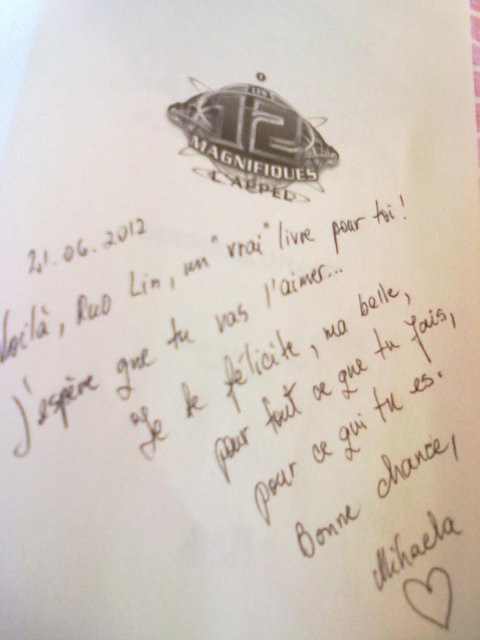 LES
12
MAGNIFIQUES
L'APPEL
21.06.2012
Voilà, Ruo Lin, un "vrai" livre pour toi!
J'espère que tu vas l'aimer...
Je te félicite, ma belle,
pour tout ce que tu fais,
pour ce qui tu es.
Bonne chance,
Mihaela